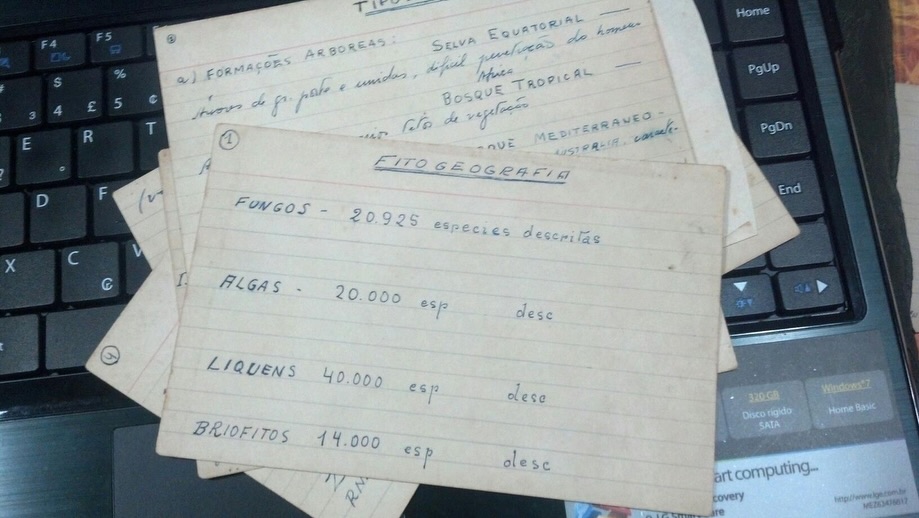 TIPO
a) FORMAÇÕES ARBOREAS: SELVA EQUATORIAL —
Árvores de gr. porte e unidas, difícil penetração do homem
África
BOSQUE TROPICAL —
fetos de vegetação
QUE MEDITERRANEO.
AUSTRALIA,
1
FITOGEOGRAFIA
FUNGOS - 20.925 especies descritas
ALGAS - 20.000 esp desc
LIQUENS 40.000 esp desc
BRIOFITOS 14.000 esp desc
F4 F5
Home
PgUp
PgDn
End
3 $ 4 £ % 5 ¢
E R T
D F
X C V
320 GB
Disco rígido
SATA
Windows®7
Home Basic
art computing...
covery
http://www.lge.com.br